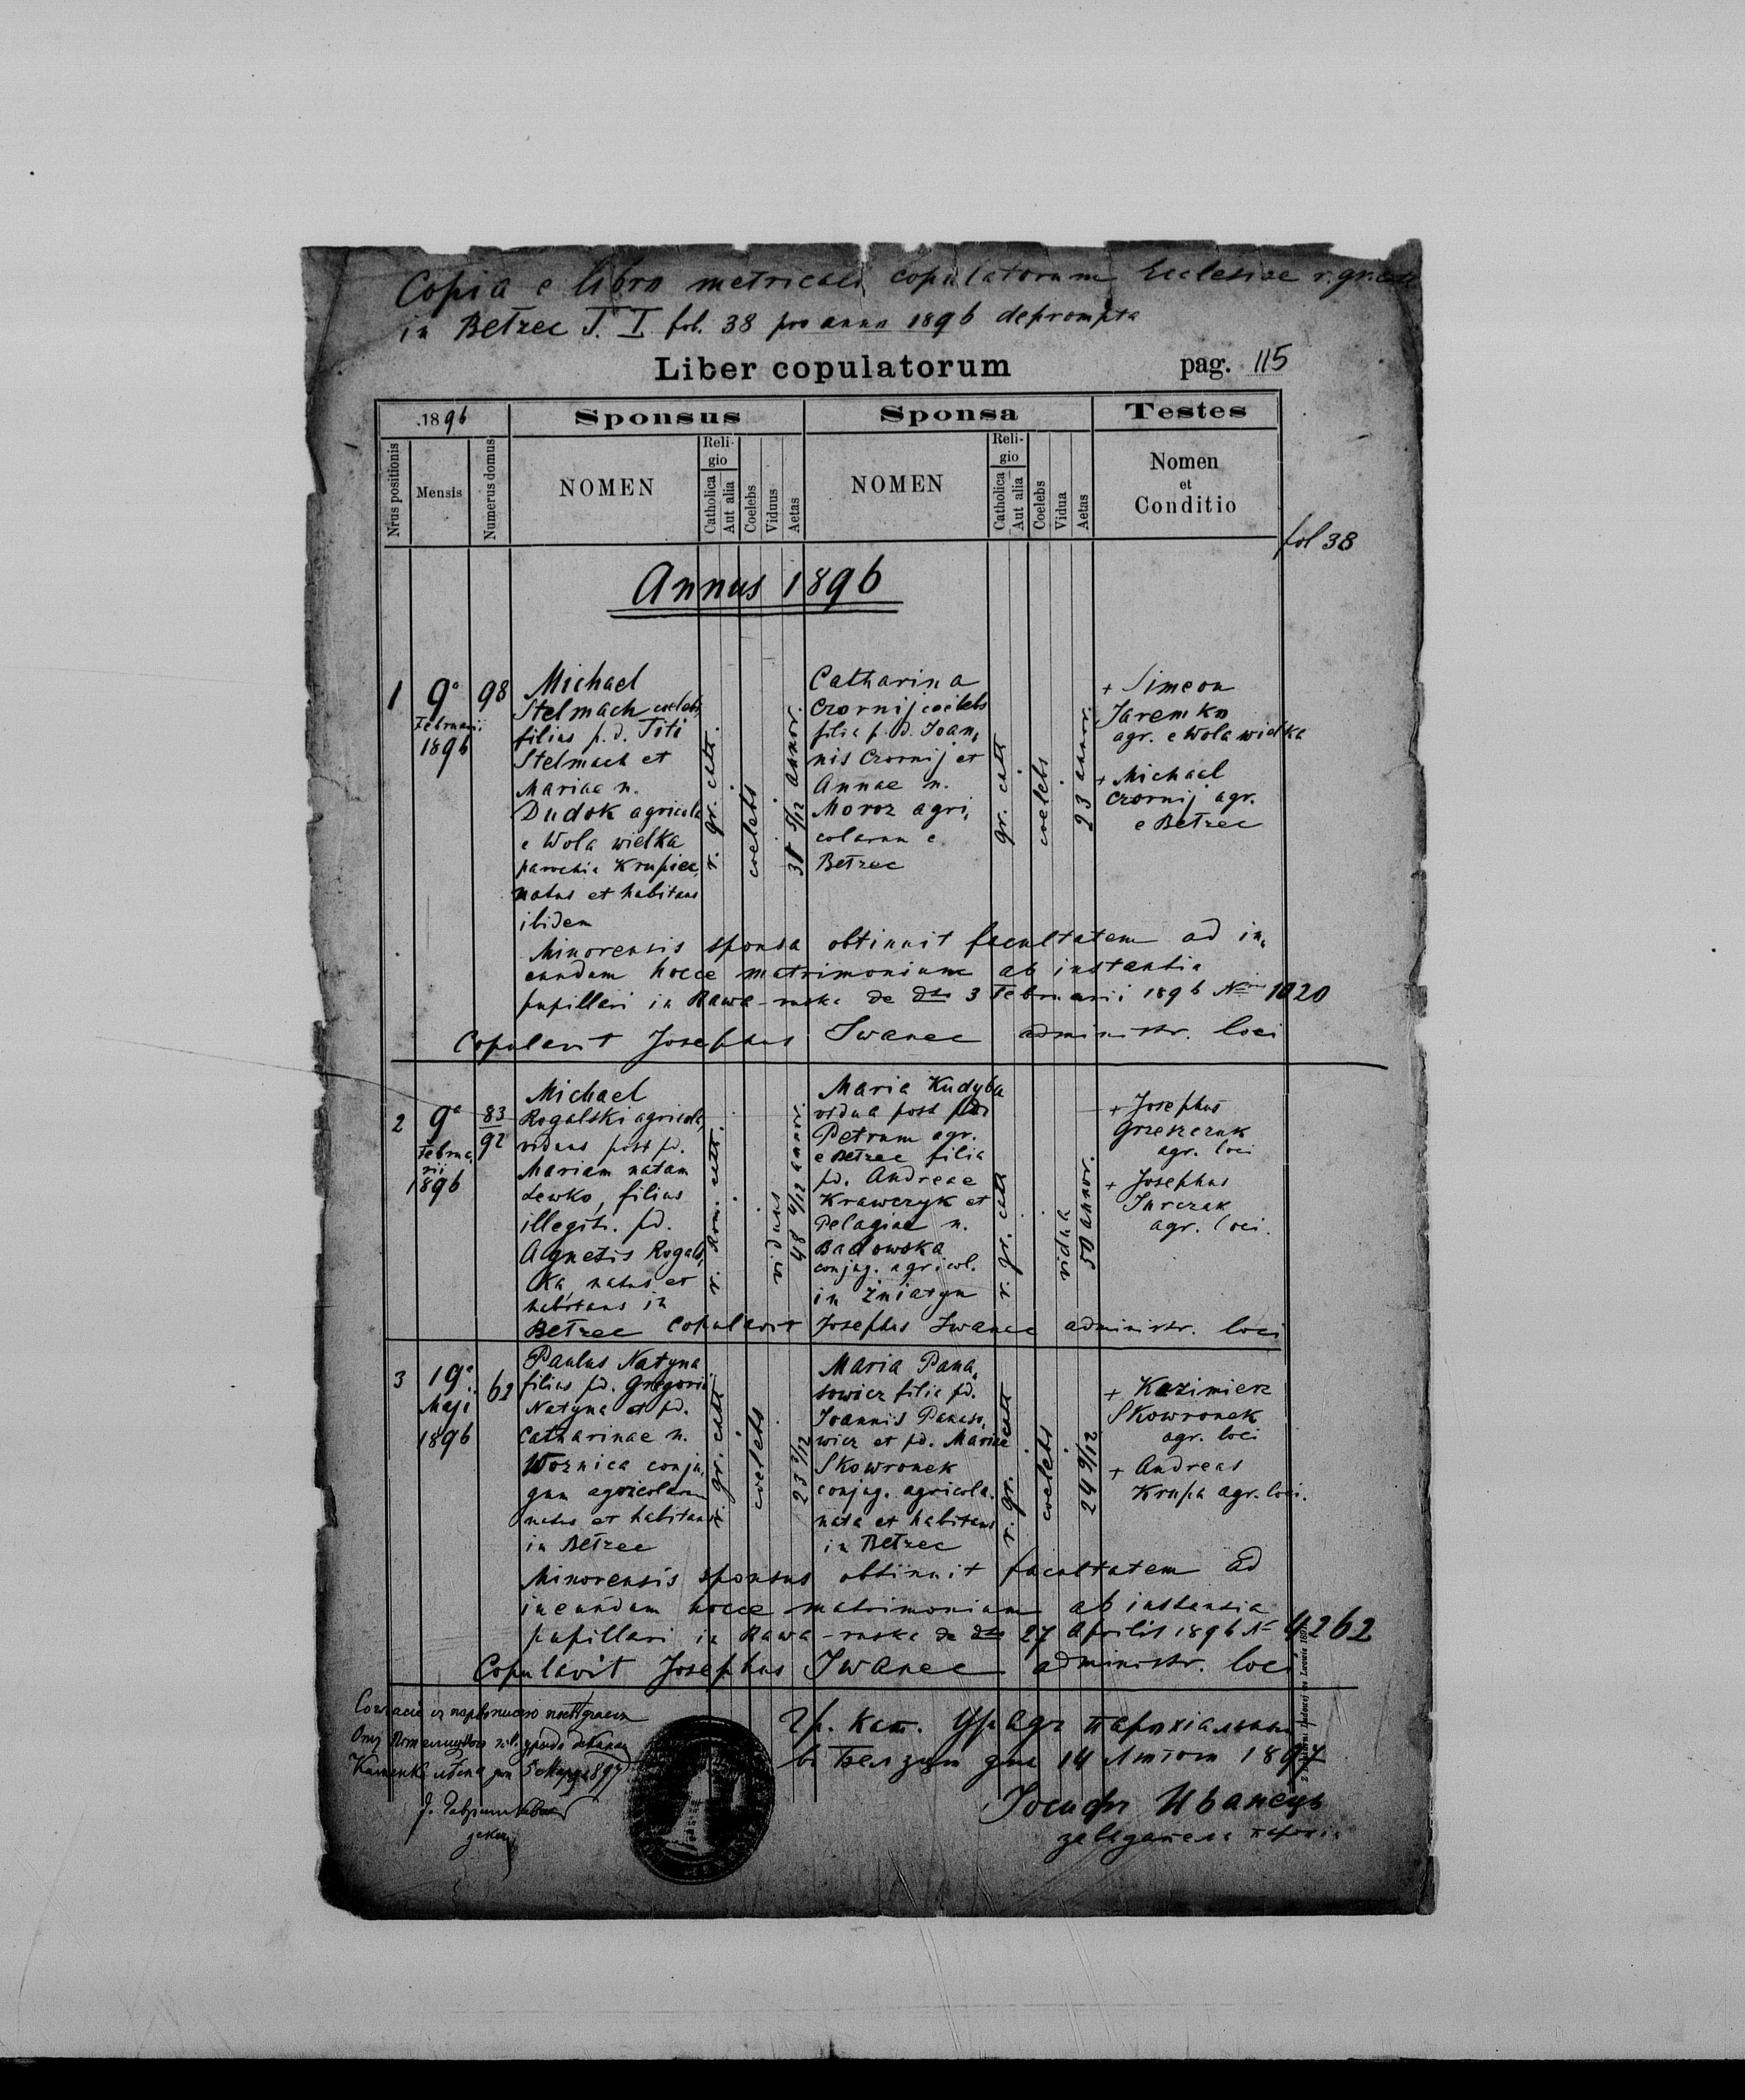 Copia e libro metricali copulatorum Ecclesiae r. gr. cath
in Bełzec T. I fol. 38 pro anno 1896 deprompta
Liber copulatorum pag. 115
1896 Sponsus Sponsa Testes
Nrus positionis Mensis Numerus domus NOMEN Religio Catholica Aut alia Coelebs Viduus Aetas NOMEN Religio Catholica Aut alia Coelebs Vidua Aetas Nomen et Conditio
fol 38
Annus 1896
1
9a
Februarii
1896
98
Michael
Stelmach coelebs
filius p. d. Titi
Stelmach et
Mariae n.
Dudok agricola
e Wola wielka
parochia Krupiec,
natus et habitans
ibidem
r. gr. cath.
coelebs
annor.
Catharina
Czornij coelebs
filia p. d. Joan,
nis Czornij et
Annae n.
Moroz agri,
colarum e
Bełzec
gr. cath
coelebs
23 annor.
+ Simeon
Jaremko
agr. e Wola wielka
+ Michael
Czornij agr.
e Bełzec
Minorensis sponsa obtinuit facultatem ad in,
eundum hocce matrimonium ab instantia
pupillari in Rawa-ruska de dto 3 Februarii 1896 Nro 1020
Copulavit Josephus Iwanec administr. loci
2
9a
Februa,
rii
1896
83
92
Michael
Rogalski agricola,
viduus post pd.
Mariam natam
Lewko, filius
illegit. pd.
Agnetis Rogals,
ka, natus et
habitans in
Bełzec
r. Rom. cath.
viduus
48 annor.
Maria Kudyba
vidua post pd.
Petrum agr.
e Bełzec filia
pd. Andreae
Krawczyk et
Pelagiae n.
Badowska
conjug. agricol.
in Żniatyn
r. gr. cath
vidua
50 annor.
+ Josephus
Grzeszczuk
agr. loci
+ Josephus
Jurczak
agr. loci.
Copulavit Josephus Iwanec administr. loci
3
19a
Maji
1896
62
Paulus Natyna
filius pd. Gregorii
Natyna et pd.
Catharinae n.
Woznica conju,
gum agricolarum
natus et habitans
in Bełzec
r. gr. cath
coelebs
Maria Pana,
sowicz filia pd.
Joannis Panaso,
wicz et pd. Mariae
Skowronek
conjug. agricola.
nata et habitans
in Bełzec
r. gr. cath
coelebs
24 9/12
+ Kazimierz
Skowronek
agr. loci
+ Andreas
Krupa agr. loci.
Minorensis sponsus obtinuit facultatem ad
ineundum hocce matrimonium ab instantia
pupillari in Rawa-ruska de dto 27 Aprilis 1896 N 4262
Copulavit Josephus Iwanec administr. loci
Гр. кат. Урядъ парохіальный
въ Белзци дня 14 Лютого 1897
Іосифъ Иванець
завѣдатель парохіи